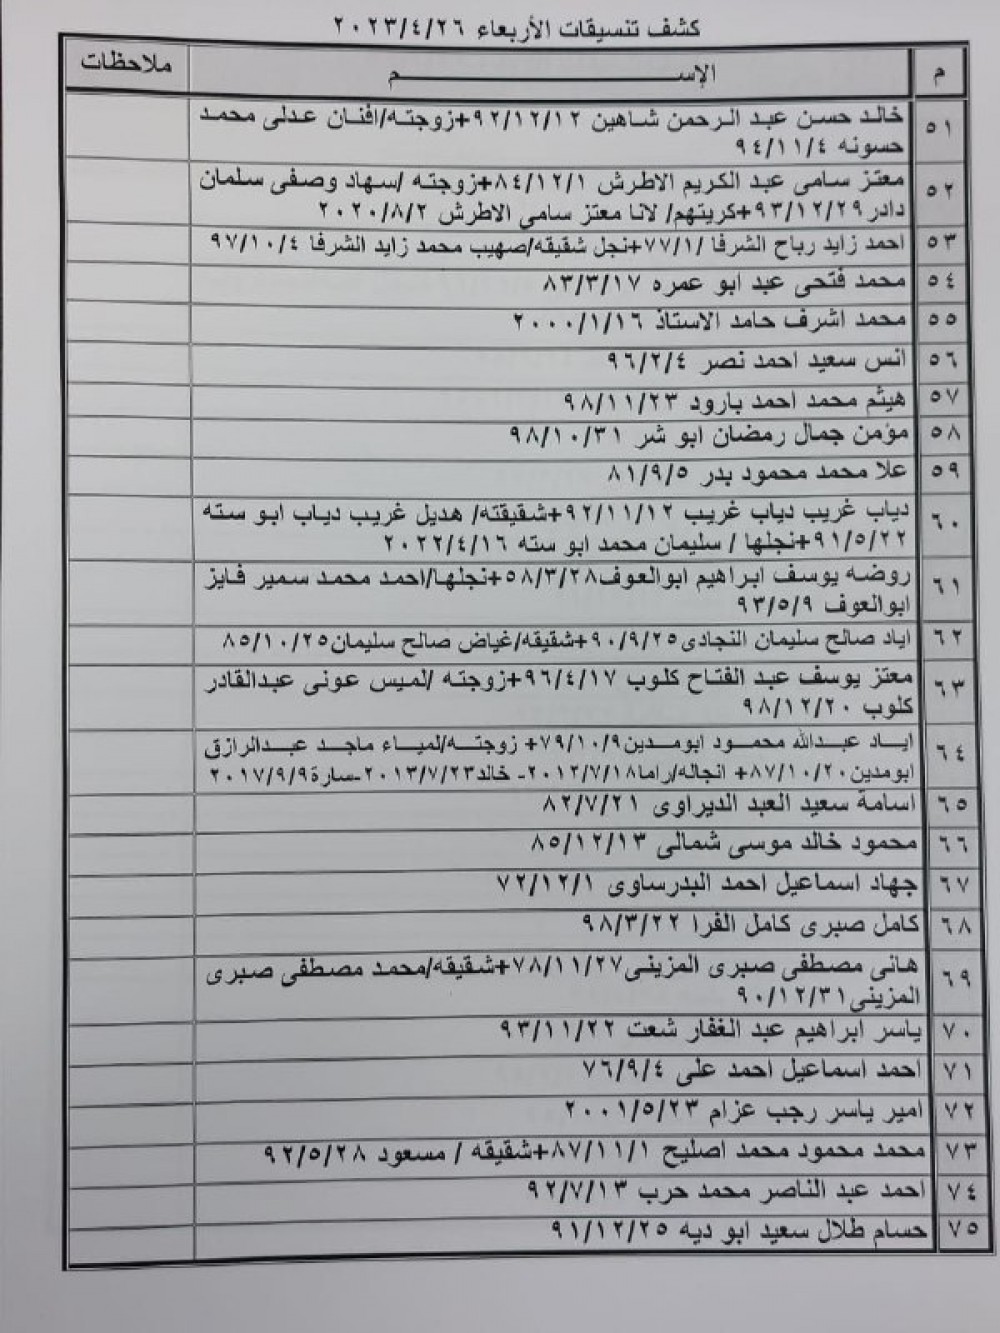 كشف تنسيقات الأربعاء ٢٠٢٣/٤/٢٦
م الإســـــــــم ملاحظات
٥١ خالد حسن عبد الرحمن شاهين ٩٢/١٢/١٢+زوجته/افنان عدلى محمد
حسونه ٩٤/١١/٤
٥٢ معتز سامى عبد الكريم الاطرش ٨٤/١٢/١+زوجته /سهاد وصفى سلمان
دادر ٩٣/١٢/٢٩+كريتهم/ لانا معتز سامى الاطرش ٢٠٢٠/٨/٢
٥٣ احمد زايد رباح الشرفا /٧٧/١+نجل شقيقه/صهيب محمد زايد الشرفا ٩٧/١٠/٤
٥٤ محمد فتحى عبد ابو عمره ٨٣/٣/١٧
٥٥ محمد اشرف حامد الاستاذ ٢٠٠٠/١/١٦
٥٦ انس سعيد احمد نصر ٩٦/٢/٤
٥٧ هيثم محمد احمد بارود ٩٨/١١/٢٣
٥٨ مؤمن جمال رمضان ابو شر ٩٨/١٠/٣١
٥٩ علا محمد محمود بدر ٨١/٩/٥
٦٠ دياب غريب دياب غريب ٩٢/١١/١٢+شقيقته/ هديل غريب دياب ابو سته
٩١/٥/٢٢+نجلها / سليمان محمد ابو سته ٢٠٢٢/٤/١٦
٦١ روضه يوسف ابراهيم ابوالعوف٥٨/٣/٢٨+نجلها/احمد محمد سمير فايز
ابوالعوف ٩٣/٥/٩
٦٢ اياد صالح سليمان النجادى٩٠/٩/٢٥+شقيقه/غياض صالح سليمان٨٥/١٠/٢٥
٦٣ معتز يوسف عبد الفتاح كلوب ٩٦/٤/١٧+زوجته /لميس عونى عبدالقادر
كلوب ٩٨/١٢/٢٠
٦٤ اياد عبدالله محمود ابومدين٧٩/١٠/٩+ زوجته/لمياء ماجد عبدالرازق
ابومدين٨٧/١٠/٢٠+ انجاله/راما٢٠١٢/٧/١٨- خالد٢٠١٣/٧/٢٣-سارة٢٠١٧/٩/٩
٦٥ اسامة سعيد العبد الديراوى ٨٢/٧/٢١
٦٦ محمود خالد موسى شمالى ٨٥/١٢/١٣
٦٧ جهاد اسماعيل احمد البدرساوى ٧٢/١٢/١
٦٨ كامل صبرى كامل الفرا ٩٨/٣/٢٢
٦٩ هانى مصطفى صبرى المزينى٧٨/١١/٢٧+شقيقه/محمد مصطفى صبرى
المزينى٩٠/١٢/٣١
٧٠ ياسر ابراهيم عبد الغفار شعت ٩٣/١١/٢٢
٧١ احمد اسماعيل احمد على ٧٦/٩/٤
٧٢ امير ياسر رجب عزام ٢٠٠١/٥/٢٣
٧٣ محمد محمود محمد اصليح ٨٧/١١/١+شقيقه / مسعود ٩٢/٥/٢٨
٧٤ احمد عبد الناصر محمد حرب ٩٢/٧/١٣
٧٥ حسام طلال سعيد ابو ديه ٩١/١٢/٢٥